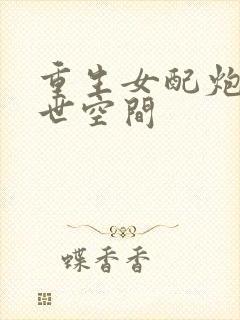 重生女配炮
世空間
蝶香香